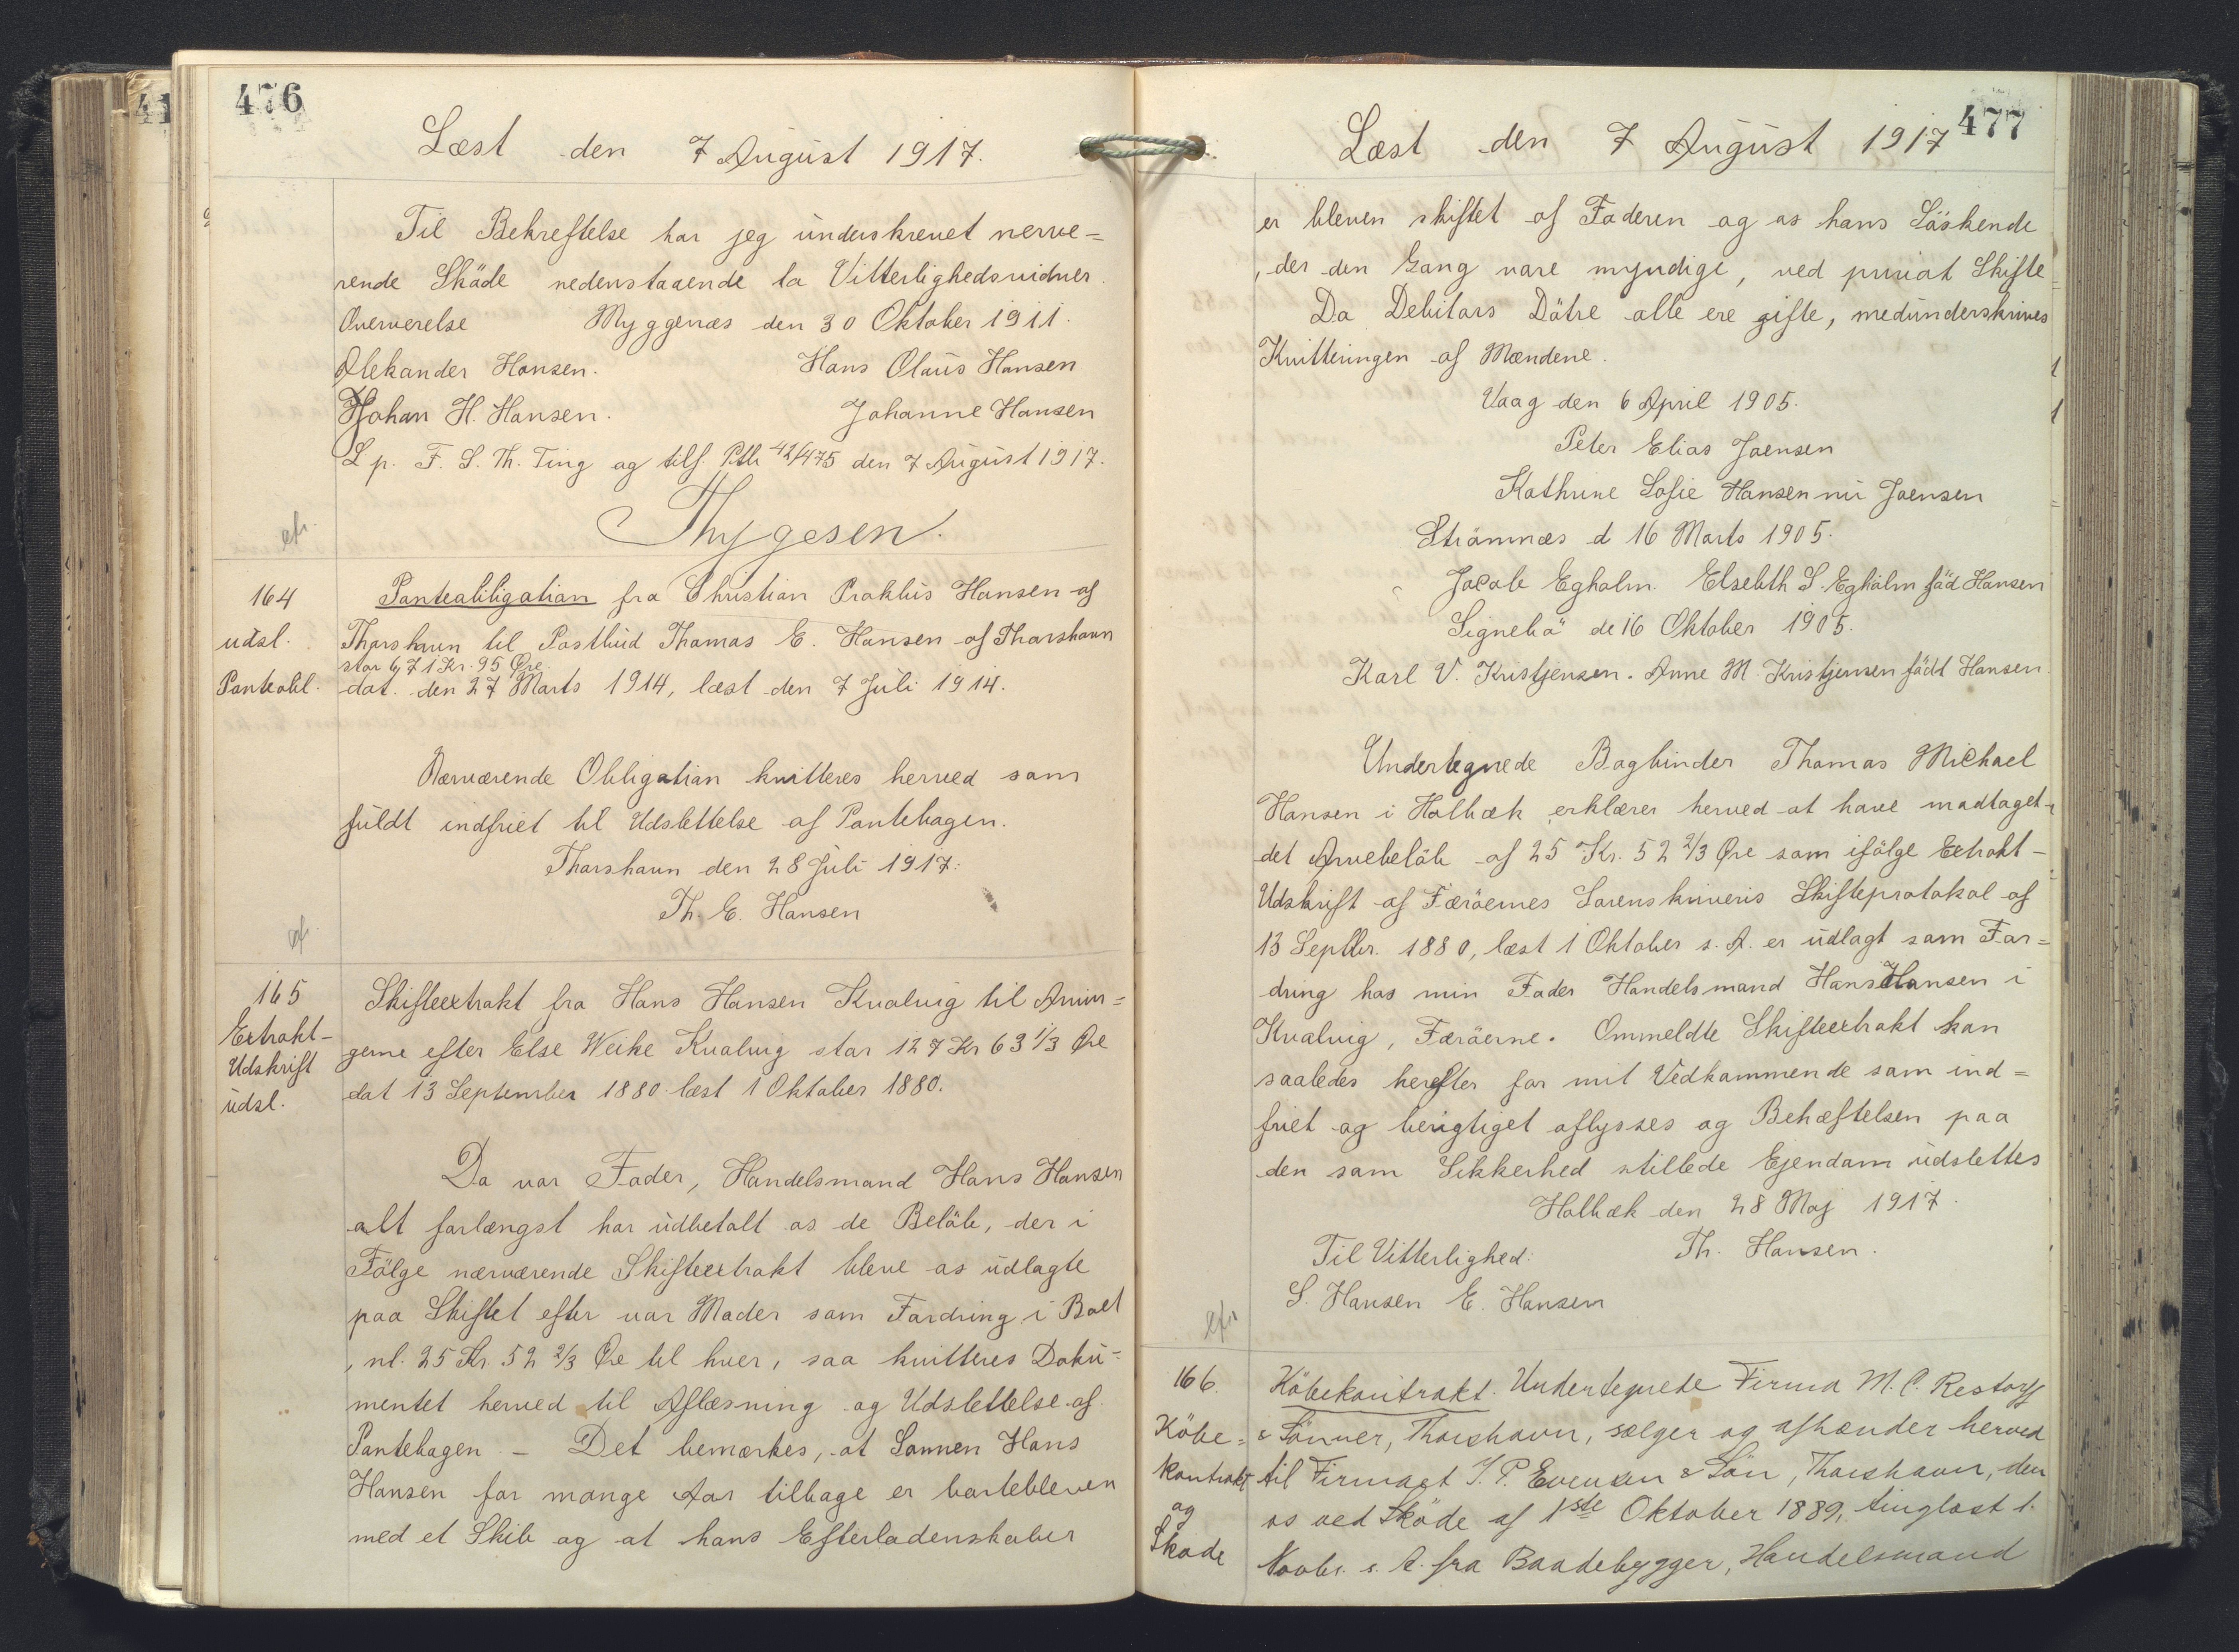 476
Læst den 7 August 1917.
Til Bekreftelse har jeg underskrevet nerve=
rende Sköde nedenstaaende to Vitterlighedsvidner
Oververelse Myggenæs den 30 Oktober 1911.
Alekander Hansen. Hans Olaus Hansen
Johan H. Hansen. Johanne Hansen
L p. F. S. Th. Ting og tilf. Ptb 42/475 den 7 August 1917.
Thygesen.
cfr.
164
udsl.
Panteobl.
Panteobligation fra Christian Proklus Hansen af
Thorshavn til Postbud Thomas E. Hansen af Thorshavn
stor 671 Kr. 95 Øre.
dat. den 27 Marts 1914, læst den 7 Juli 1914.
Nærværende Obligation kvitteres herved som
fuldt indfriet til Udslettelse af Pantebogen.
Thorshavn den 28 Juli 1917.
Th. E. Hansen
cfr.
165
Extrakt-
Udskrift
udsl.
Skifteextrakt fra Hans Hansen Kvalvig til Arvin=
gerne efter Else Weike Kvalvig stor 127 Kr 63 1/3 Øre
dat 13 September 1880 læst 1 Oktober 1880.
Da vor Fader, Handelsmand Hans Hansen
alt forlængst har udbetalt os de Belöb, der i
Fölge nærværende Skifteextrakt bleve os udlagte
paa Skiftet efter vor Moder som Fordring i Boet
, nl. 25 Kr. 52 2/3 Øre til hver, saa kvitteres Doku=
mentet herved til Aflæsning og Udslettelse af
Pantebogen. – Det bemærkes, at Sønnen Hans
Hansen for mange Aar tilbage er bortebleven
med et Skib og at hans Efterladenskaber
477
Læst den 7 August 1917
er bleven skiftet af Faderen og os hans Söskende
, der den Gang vare myndige, ved privat Skifte
Da Debitors Dötre alle ere gifte, medunderskrives
Kvitteringen af Mændene.
Vaag den 6 April 1905.
Peter Elias Joensen
Kathrine Sofie Hansen nu Joensen
Strömnæs d 16 Marts 1905.
Jacob Egholm. Elsebeth S. Egholm föd Hansen
Signebö de 16 Oktober 1905.
Karl V. Kristjensen. Anne M. Kristjensen födt Hansen.
Undertegnede Bogbinder Thomas Michael
Hansen i Holbæk erklærer herved at have modtaget
det Arvebelöb af 25 Kr. 52 2/3 Øre som ifölge Extrakt-
Udskrift af Færöernes Sorenskriveris Skifteprotokol af
13 Septbr. 1880, læst 1 Oktober s. A. er udlagt som For=
dring hos min Fader Handelsmand Hans Hansen i
Kvalvig, Færöerne. Ommeldte Skifteextrakt kan
saaledes herefter for mit Vedkommende som ind=
friet og berigtiget aflysses og Behæftelsen paa
den som Sikkerhed stillede Ejendom udslettes
Holbæk den 28 Maj 1917.
Til Vitterlighed: Th. Hansen.
S. Hansen E. Hansen
cfr
166.
Köbe=
kontrakt
og
Sköde
Köbekontrakt. Undertegnede Firma M. C. Restorff
& Sönner, Thorshavn, sælger og afhænder herved
til Firmaet J. P. Evensen & Sön, Thorshavn, den
os ved Sköde af 1ste Oktober 1889, tinglæst 1.
Novbr. s. A. fra Baadebygger, Handelsmand